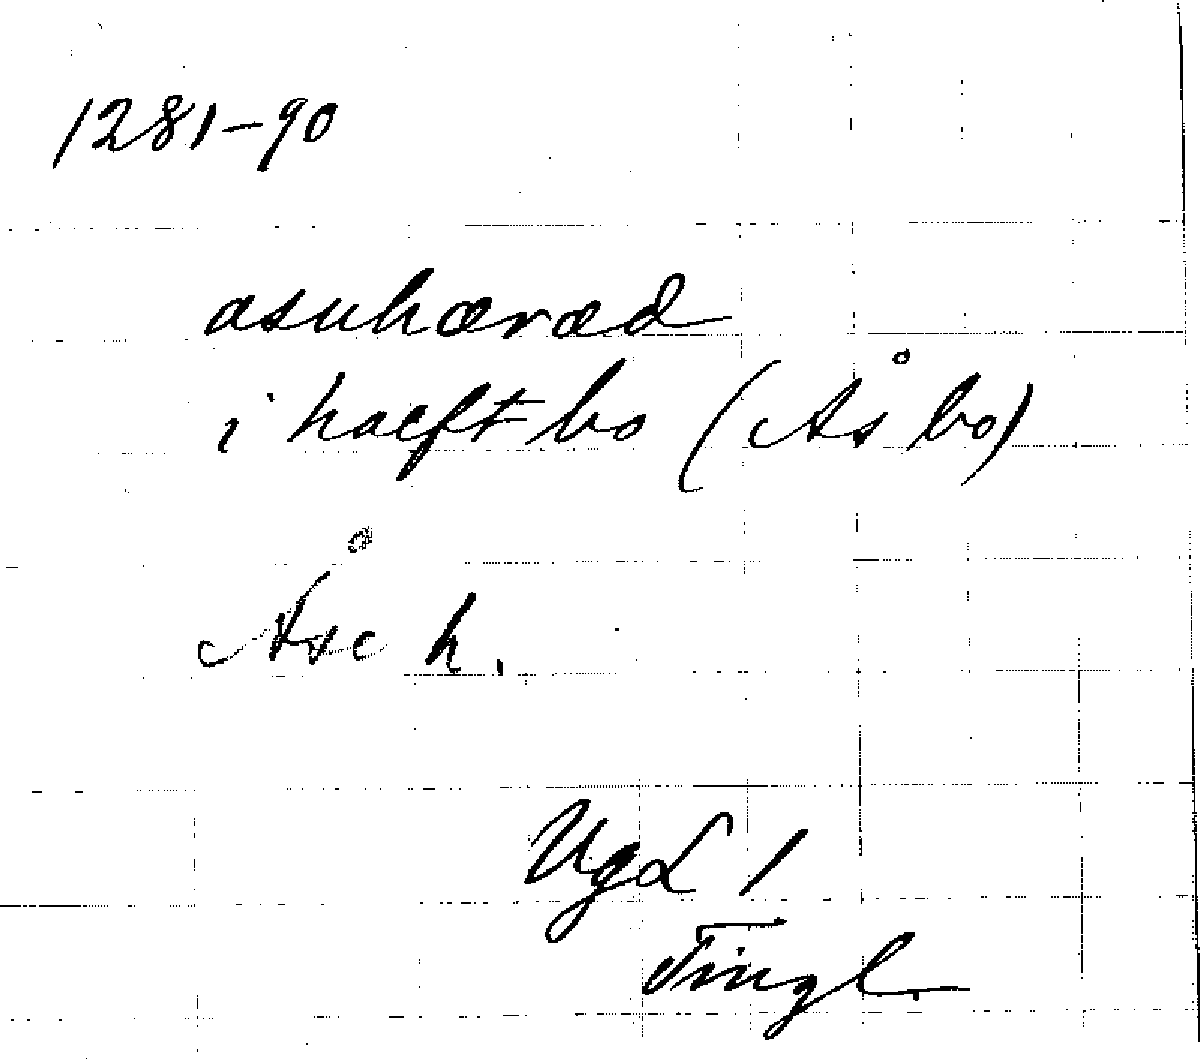 1281-90
asuhæræd
i haeft bo (Ås bo)
Åse h.
VgL 1
Tingl.